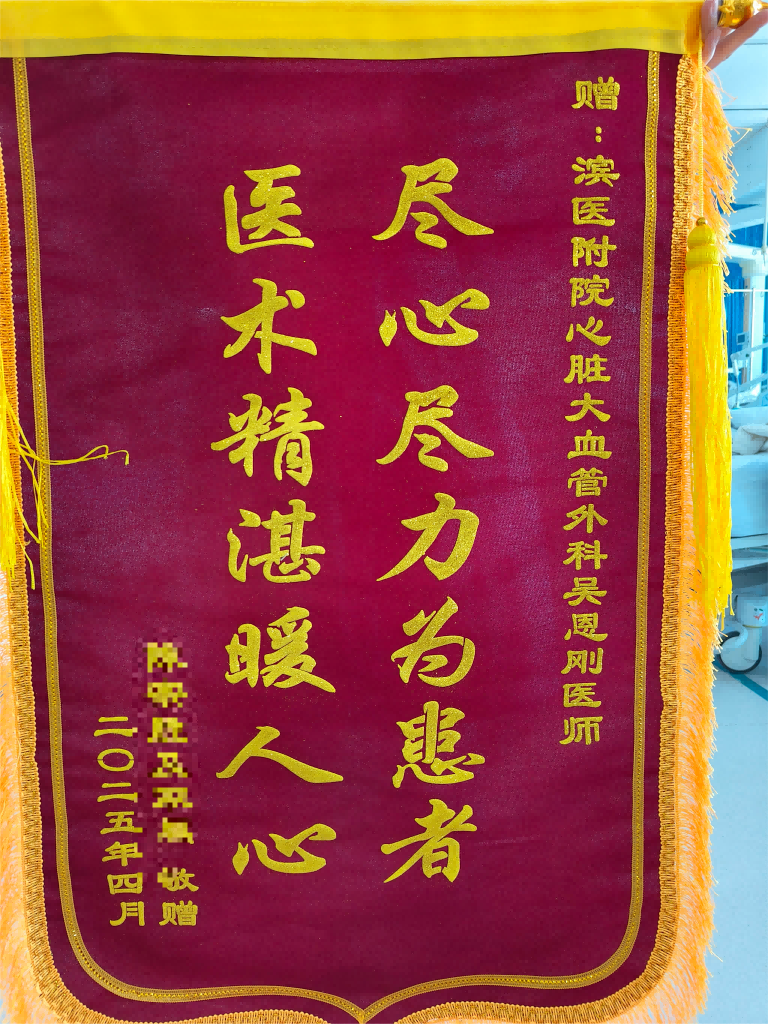 赠：滨医附院心脏大血管外科吴恩刚医师
尽心尽力为患者
医术精湛暖人心
敬赠
二〇二五年四月